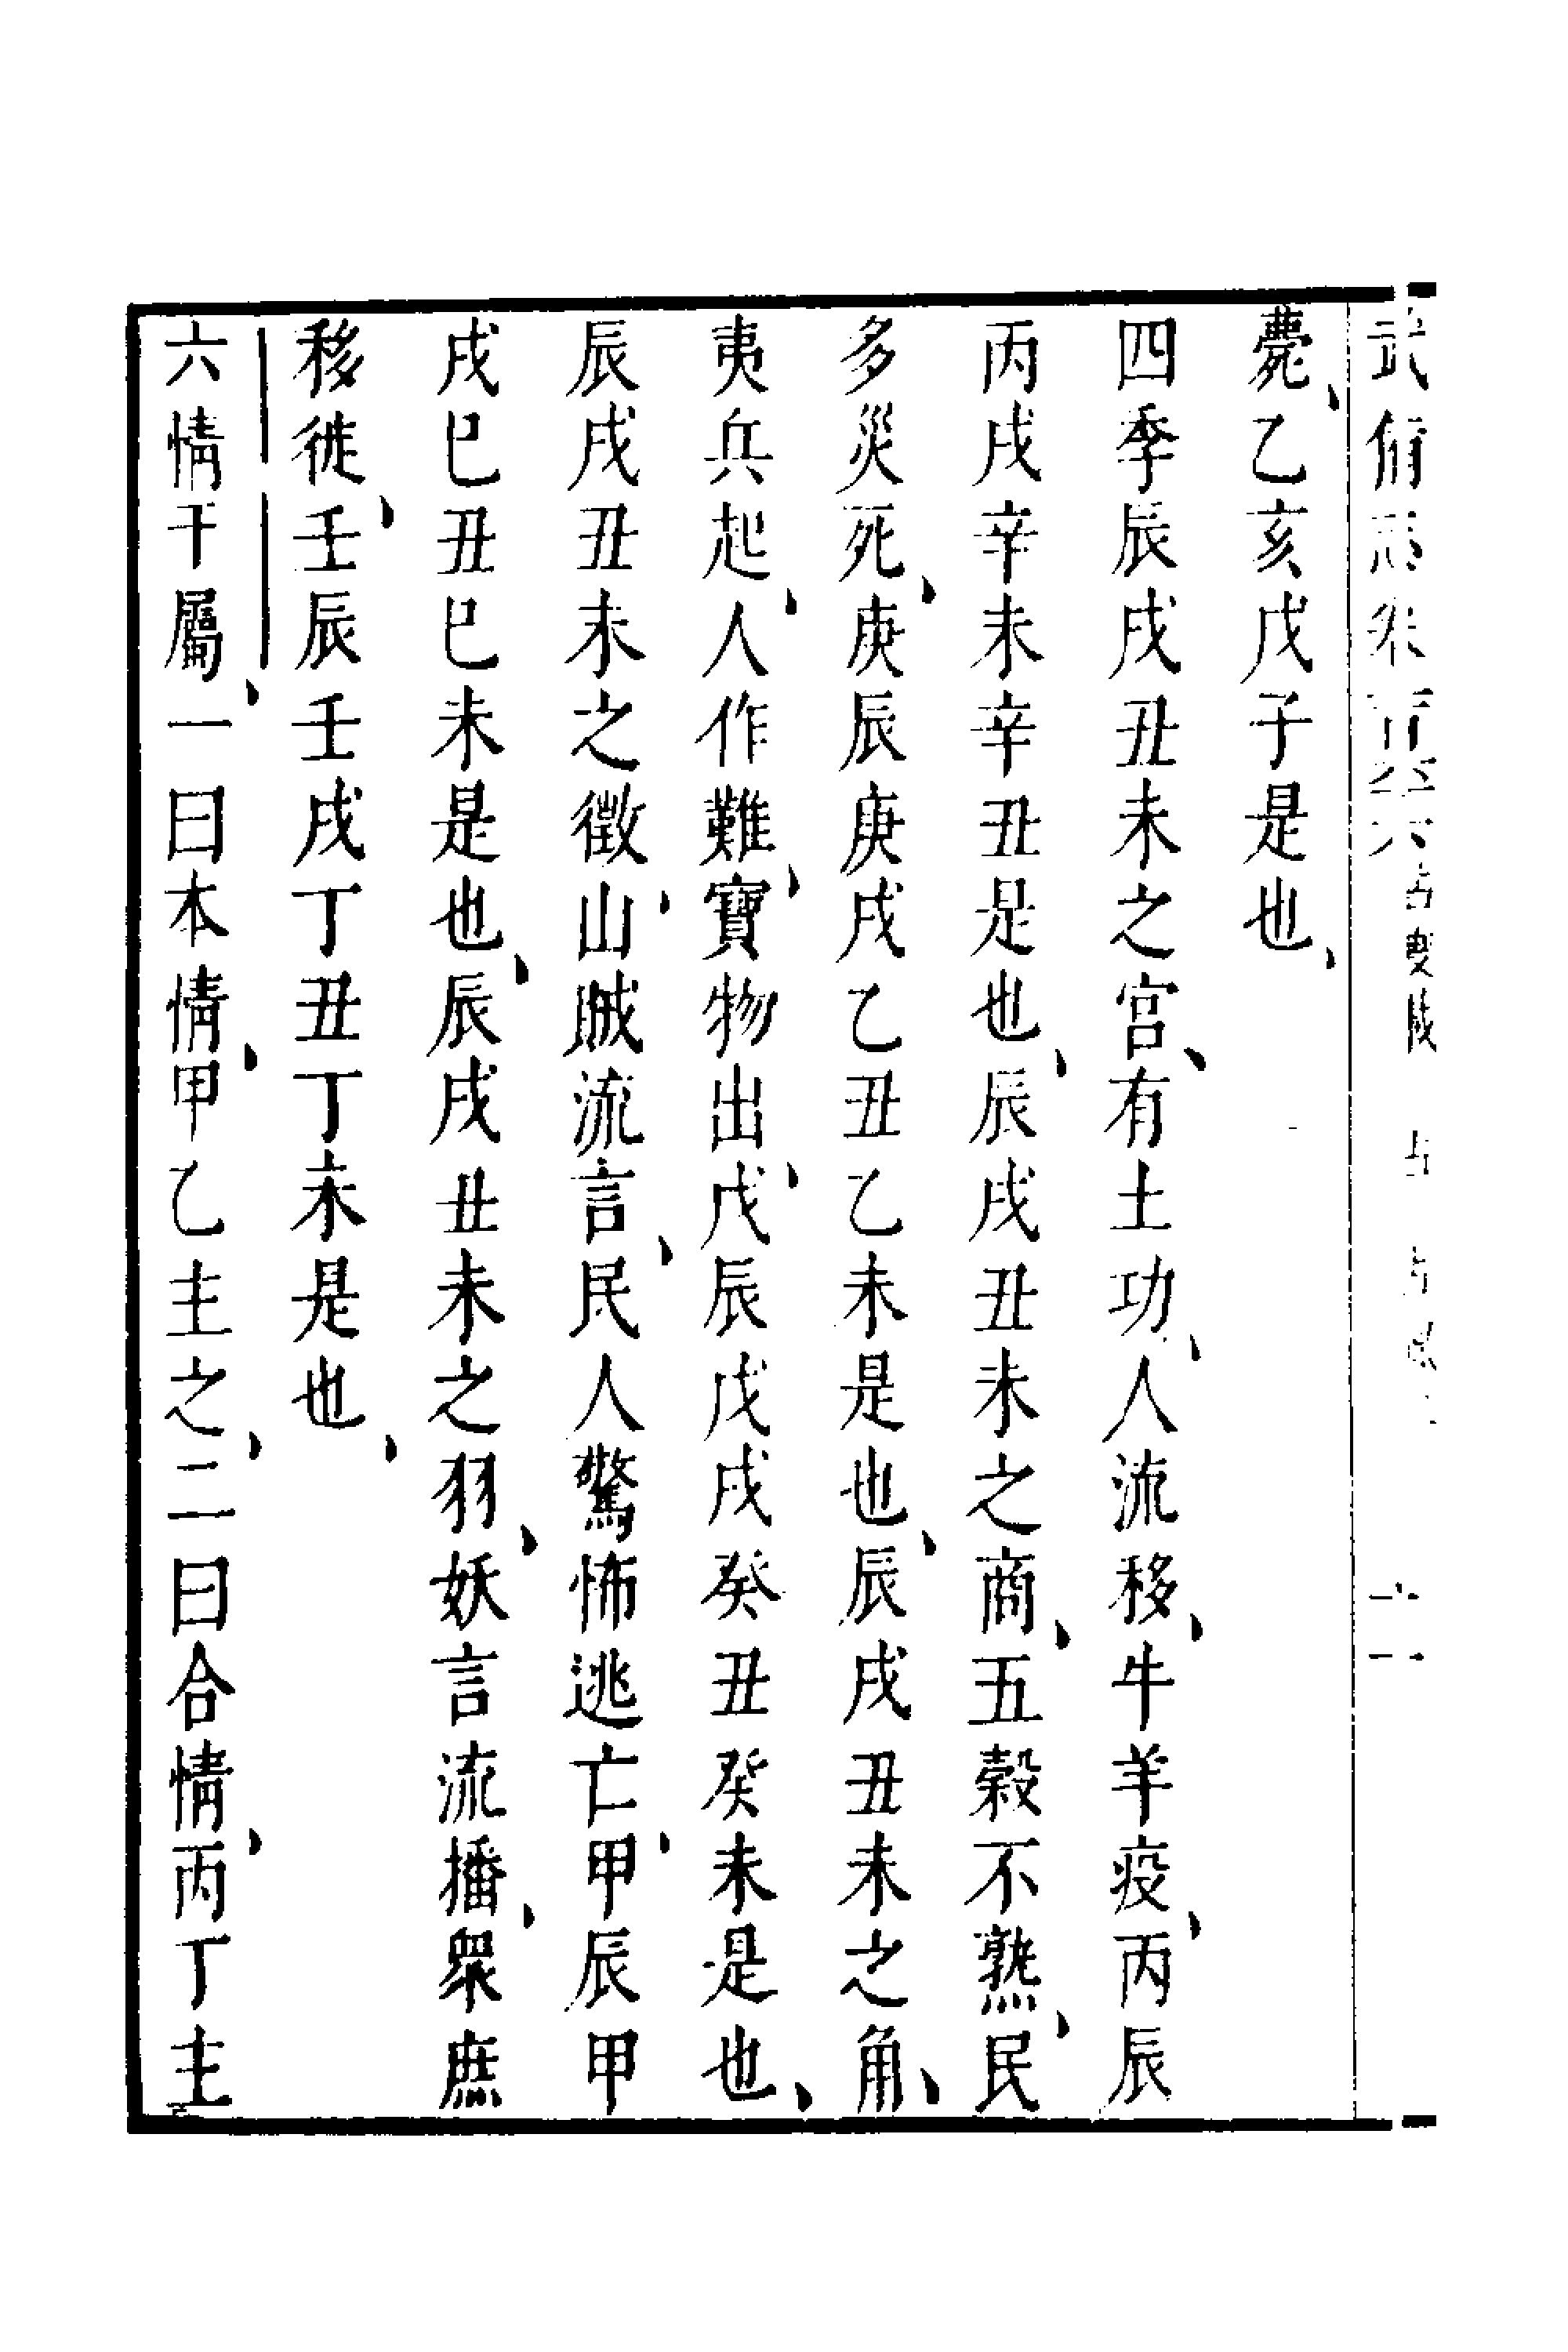 武俻志卷
薨、乙亥戊子是也、
四季辰戌丑未之宮、有土功、人流移、牛羊疫、丙辰
丙戌辛未辛丑是也、辰戌丑未之商、五穀不熟、民
多災死、庚辰庚戌乙丑乙未是也、辰戌丑未之角、
夷兵起、人作難、寶物出、戊辰戊戌癸丑癸未是也、
辰戌丑未之徵、山賊流言、民人驚怖逃亡、甲辰甲
戌巳丑巳未是也、辰戌丑未之羽、妖言流播、衆庶
移徙、壬辰壬戌丁丑丁未是也、
六情干屬、一曰本情、甲乙主之、二曰合情、丙丁主